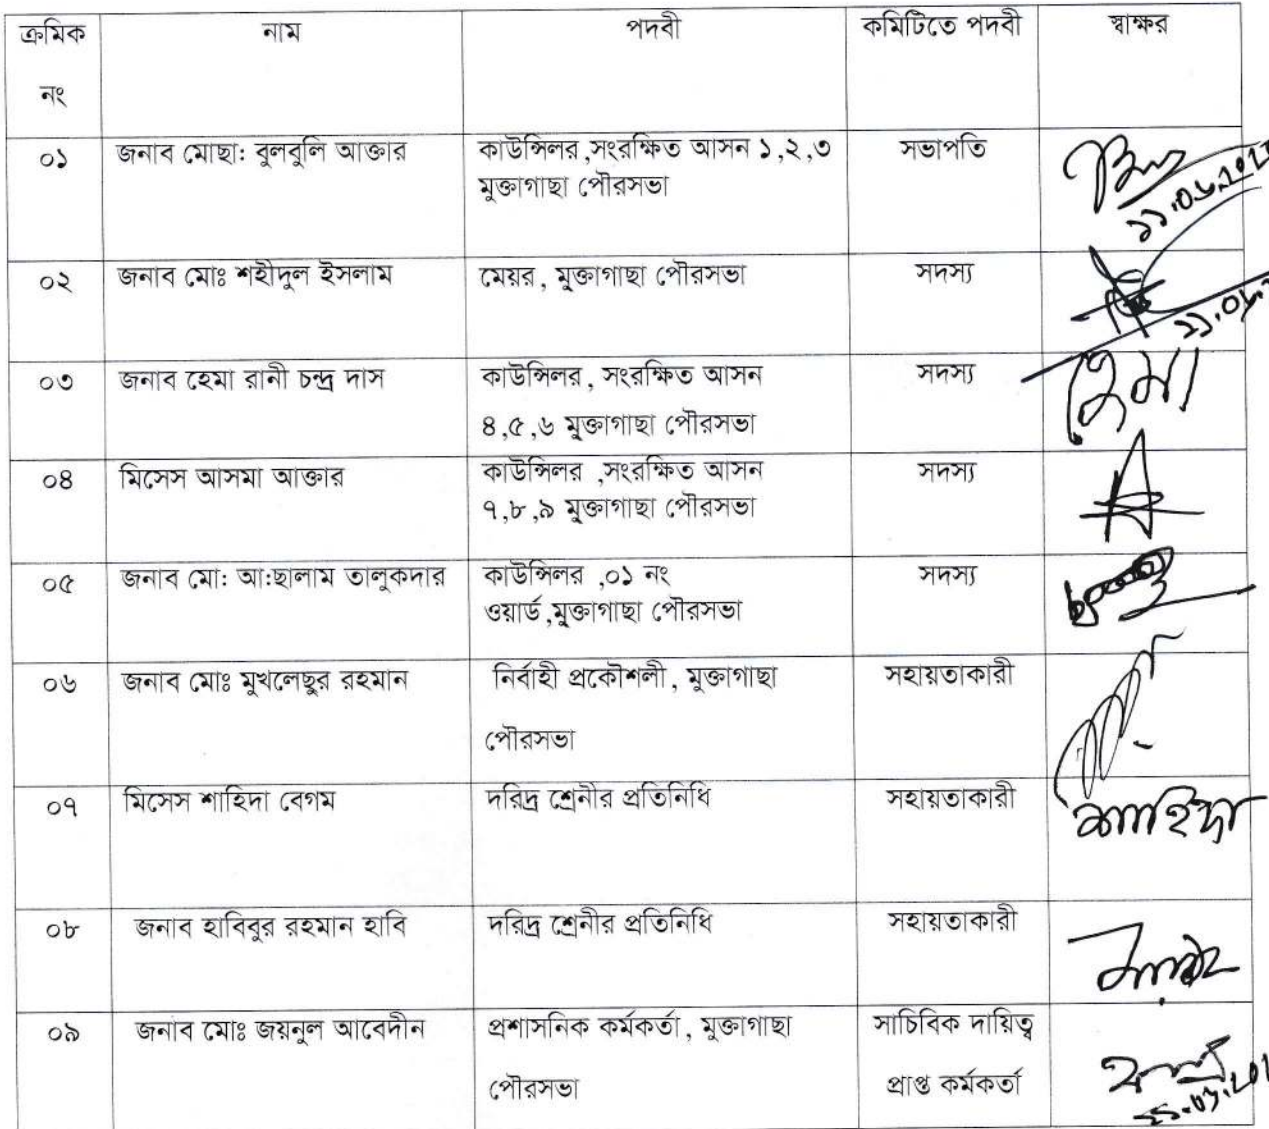 ক্রমিক নাম পদবী কমিটিতে পদবী স্বাক্ষর
নং
০১ জনাব মোছা: বুলবুলি আক্তার কাউন্সিলর,সংরক্ষিত আসন ১,২,৩ সভাপতি
মুক্তাগাছা পৌরসভা
০২ জনাব মোঃ শহীদুল ইসলাম মেয়র, মুক্তাগাছা পৌরসভা সদস্য
০৩ জনাব হেমা রানী চন্দ্র দাস কাউন্সিলর, সংরক্ষিত আসন সদস্য হেমা
৪,৫,৬ মুক্তাগাছা পৌরসভা
০৪ মিসেস আসমা আক্তার কাউন্সিলর ,সংরক্ষিত আসন সদস্য
৭,৮,৯ মুক্তাগাছা পৌরসভা
০৫ জনাব মো: আ:ছালাম তালুকদার কাউন্সিলর ,০১ নং সদস্য
ওয়ার্ড,মুক্তাগাছা পৌরসভা
০৬ জনাব মোঃ মুখলেছুর রহমান নির্বাহী প্রকৌশলী, মুক্তাগাছা সহায়তাকারী
পৌরসভা
০৭ মিসেস শাহিদা বেগম দরিদ্র শ্রেনীর প্রতিনিধি সহায়তাকারী শাহিদা
০৮ জনাব হাবিবুর রহমান হাবি দরিদ্র শ্রেনীর প্রতিনিধি সহায়তাকারী
০৯ জনাব মোঃ জয়নুল আবেদীন প্রশাসনিক কর্মকর্তা, মুক্তাগাছা সাচিবিক দায়িত্ব
পৌরসভা প্রাপ্ত কর্মকর্তা